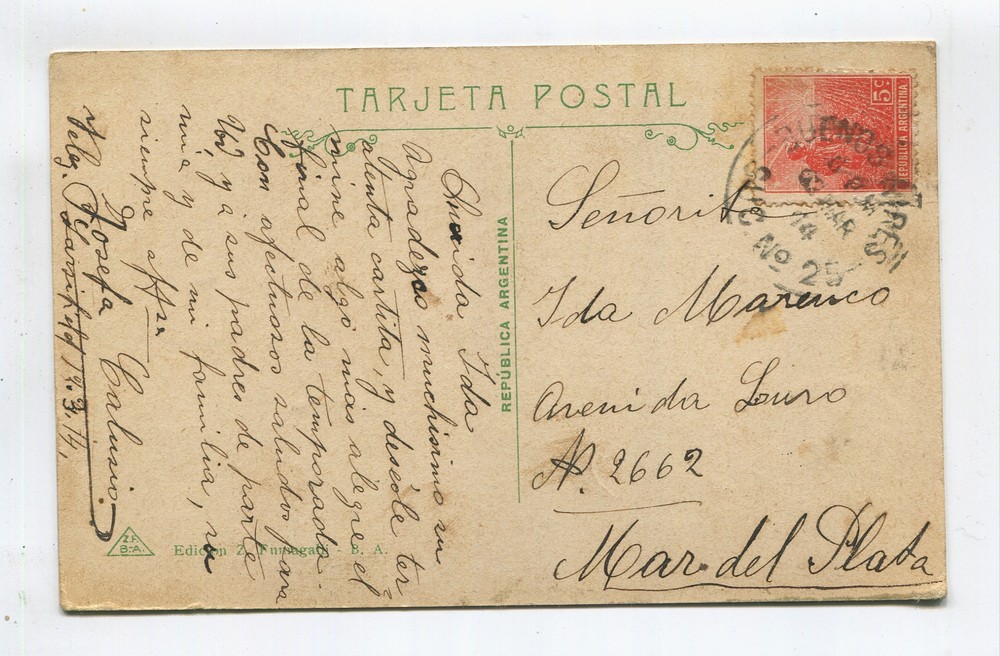 TARJETA POSTAL
REPÚBLICA ARGENTINA
5 c
REPUBLICA ARGENTINA
BUENOS AIRES
MAR
14
SUC. Nº 25
Señorita
Ida Marenco
Avenida Luro
N. 2662
Mar del Plata
Querida Ida
Agradezco muchisimo su
atenta cartita, y deséole ter
mine algo mas alegre el
final de la temporada.
Con afectuosos saludos para
Vd y a sus padres de parte
mia y de mi familia, su
siempre affma
Josefa
12.3.14.
Z.F.
B-A.
Edicion Z. Fumagalli - B. A.